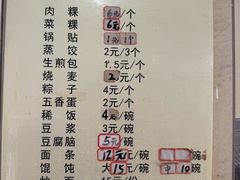 肉粿 6元/个
菜粿 6元/个
锅贴 1元1个
蒸饺 2元/3个
生煎包 1.5元/个
烧麦 2元/个
粽子 4元/个
五香蛋 2元/个
稀饭 4元/碗
豆浆 3元/碗
豆腐脑 5元/碗
面条 12元/碗
馄饨 大15元/碗 中10碗